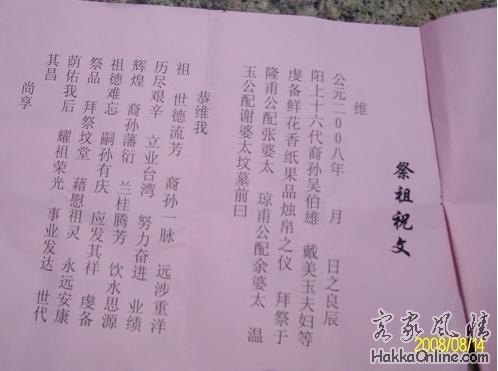 祭祖祝文
维
公元二00八年 月 日之良辰
阳上十六代裔孙吴伯雄 戴美玉夫妇等
虔备鲜花香纸果品烛帛之仪 拜祭于
隆甫公配张婆太 琼甫公配余婆太 温
玉公配谢婆太坟墓前曰
恭维我
祖 世德流芳 裔孙一脉 远涉重洋
历尽艰辛 立业台湾 努力奋进 业绩
辉煌 裔孙藩衍 兰桂腾芳 饮水思源
祖德难忘 嗣孙有庆 应发其祥 虔备
祭品 拜祭坟堂 藉慰祖灵 永远安康
荫佑我后 耀祖荣光 事业发达 世代
其昌
尚享
客家风情
2008/08/14
HakkaOnline.com